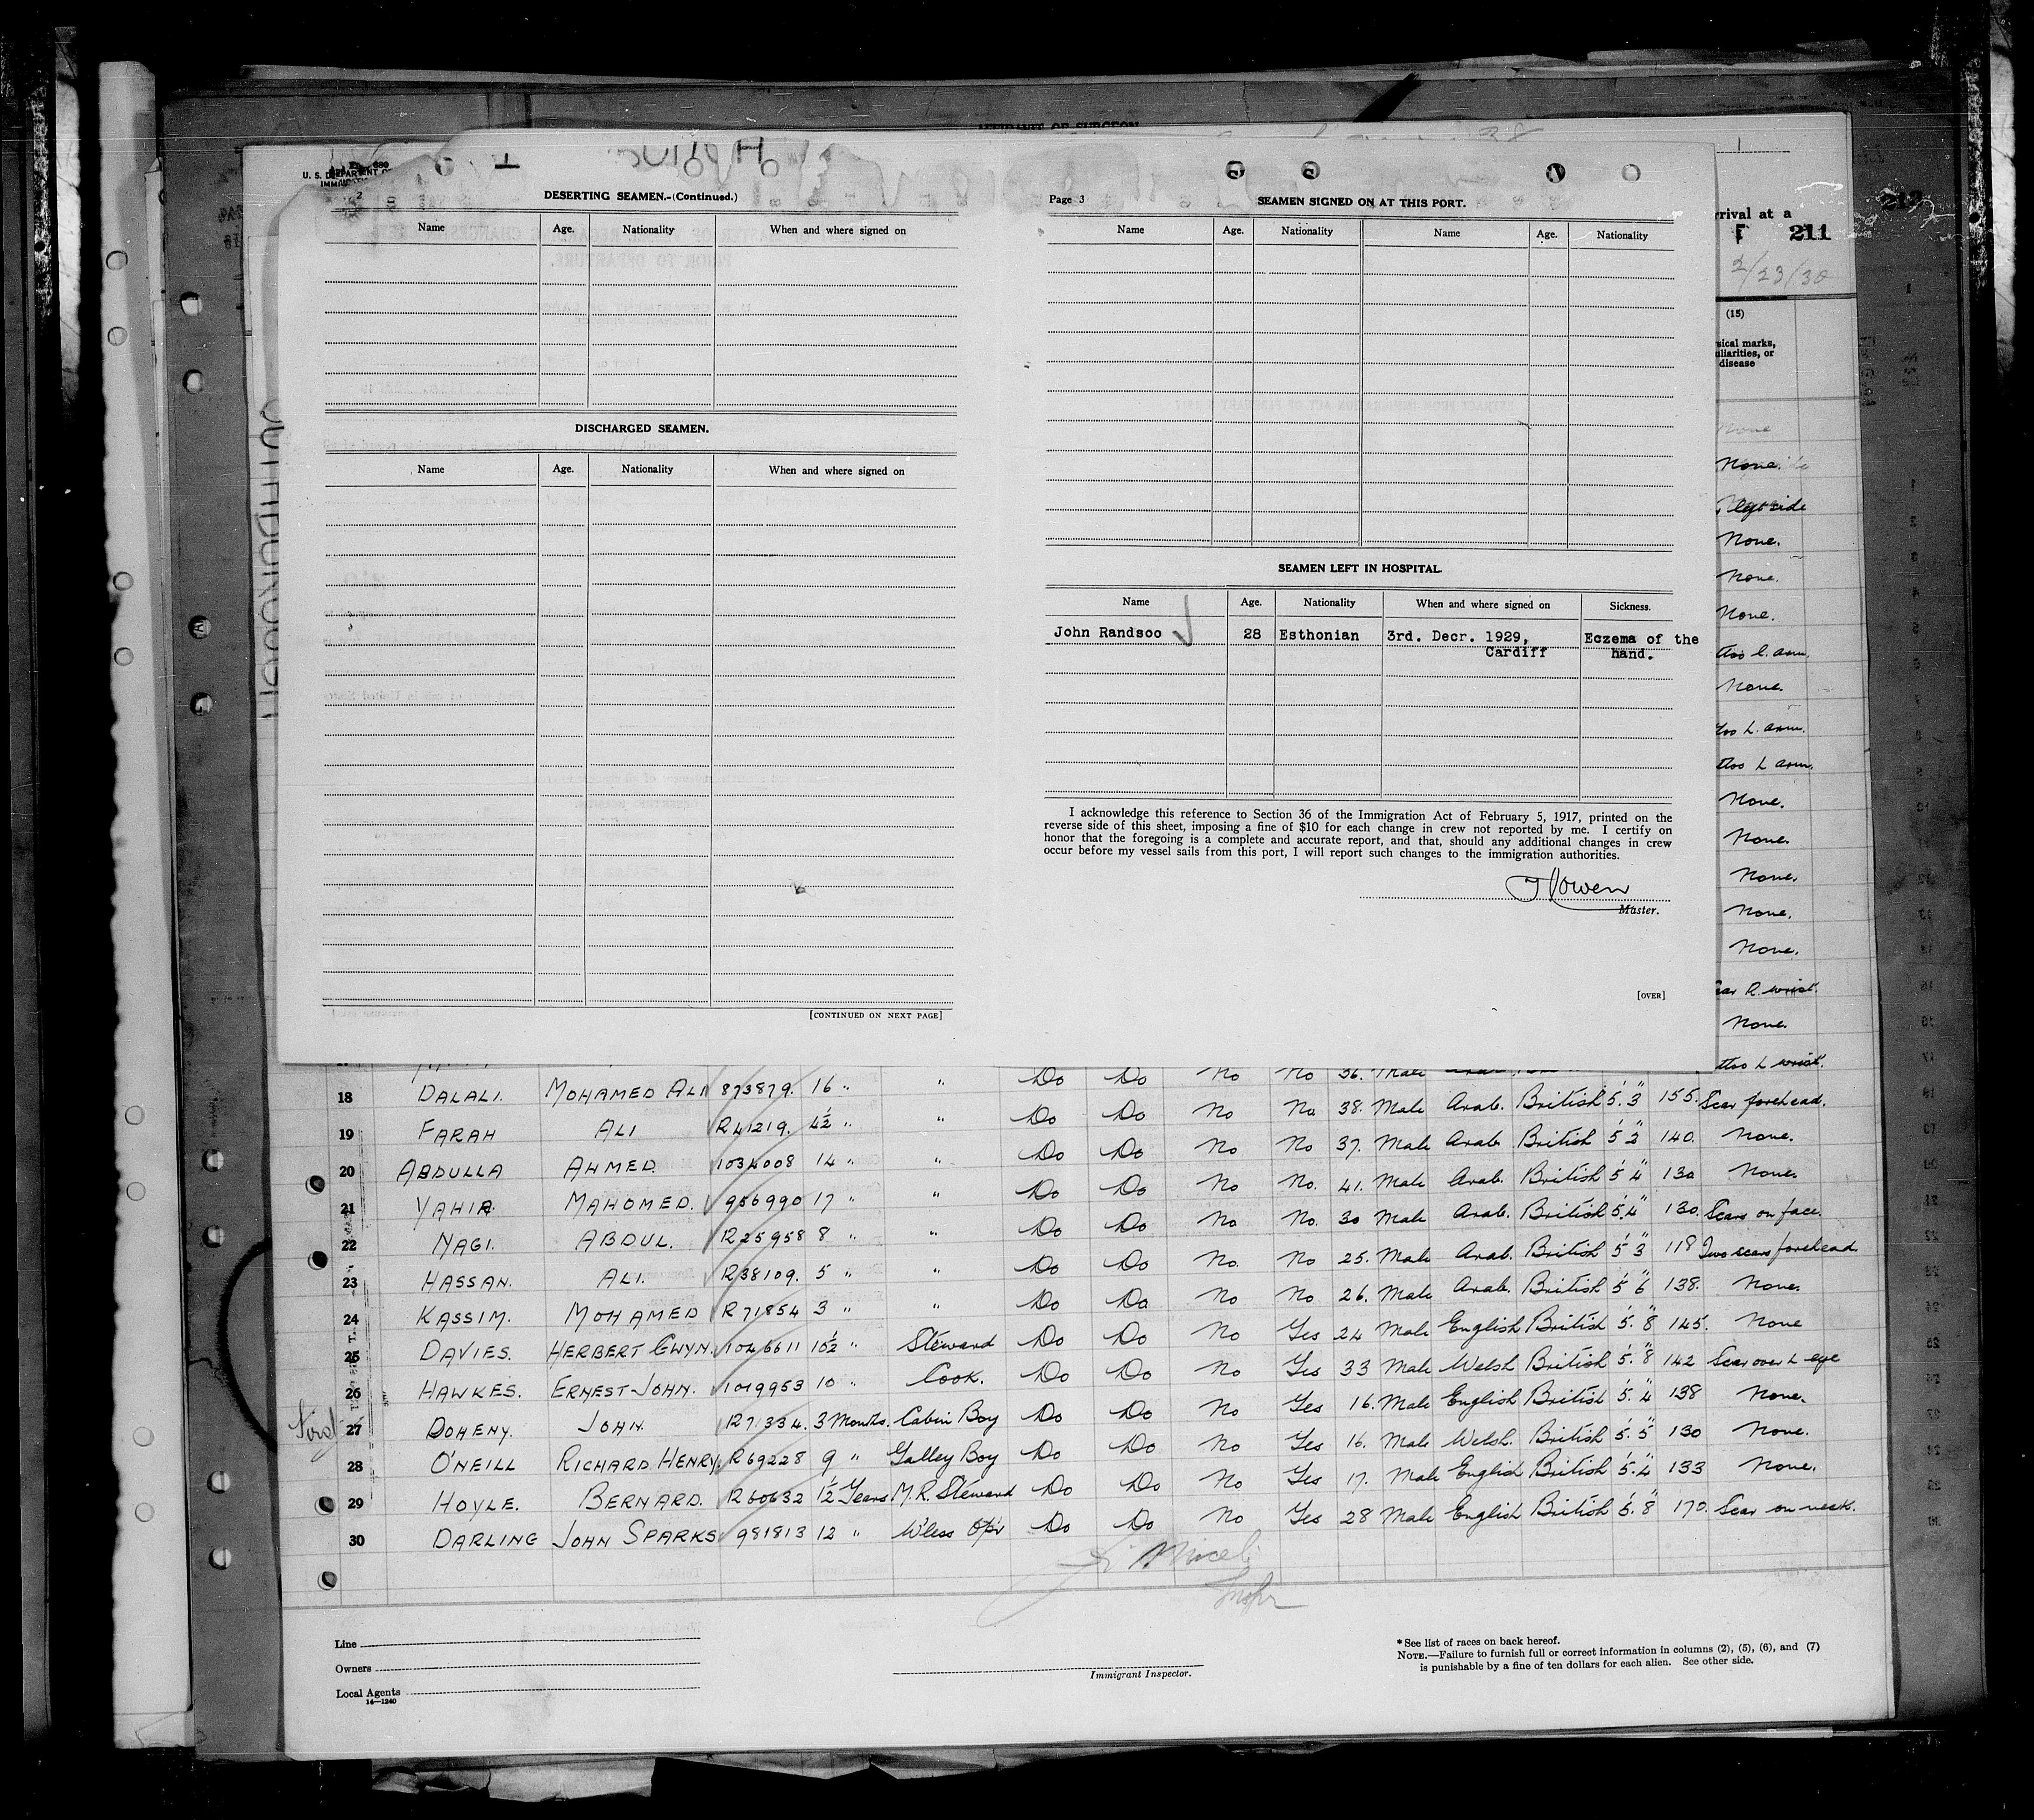 U. S. DEPARTMENT O
DESERTING SEAMEN.-(Continued.)
Name Age. Nationality When and where signed on
DISCHARGED SEAMEN.
Name Age. Nationality When and where signed on
[CONTINUED ON NEXT PAGE]
Page 3
SEAMEN SIGNED ON AT THIS PORT.
Name Age. Nationality Name Age. Nationality
SEAMEN LEFT IN HOSPITAL.
Name Age. Nationality When and where signed on Sickness.
John Randsoo 28 Esthonian 3rd. Decr. 1929, Eczema of the
Cardiff hand.
I acknowledge this reference to Section 36 of the Immigration Act of February 5, 1917, printed on the
reverse side of this sheet, imposing a fine of $10 for each change in crew not reported by me. I certify on
honor that the foregoing is a complete and accurate report, and that, should any additional changes in crew
occur before my vessel sails from this port, I will report such changes to the immigration authorities.
Master.
[OVER]
212
rrival at a
211
2/23/30
(15)
sical marks,
uliarities, or
disease
None
None.
None.
None.
None.
ttoo L. arm.
None.
too L. arm.
ttoo L arm.
None.
None.
None.
None.
None.
ar R. wrist.
None.
ttoo L wrist.
Do Do No No 36. Male
18 DALALI. MOHAMED ALI 873879. 16 " " Do Do No No 38. Male Arab. British 5'.3" 155. Scar forehead.
19 FARAH ALI R41219. 4½ " " Do Do No No 37. Male Arab British 5'2" 140. None.
20 ABDULLA AHMED. 1034008 14 " " Do Do No No. 41. Male Arab. British 5'4" 130 None.
21 YAHIA. MAHOMED. 956990 17 " " Do Do No No. 30 Male Arab. British 5'.4" 130. Scars on face.
22 NAGI. ABDUL. R25958 8 " " Do Do No. No 25. Male Arab. British 5'3" 118 Two scars forehead.
23 HASSAN. ALI. R38109. 5 " " Do Do No No 26. Male Arab. British 5'6" 138. None.
24 KASSIM. MOHAMED R71854 3 " " Do Do No Yes 24 Male English British 5'.8" 145. None
25 DAVIES. HERBERT GWYN. 1046611 10½ " Steward Do Do No Yes 33 Male Welsh British 5'.8" 142 Scar over L eye
26 HAWKES. ERNEST JOHN. 1019953 10 " Cook. Do Do No Yes 16. Male English British 5'.4" 138 None.
27 DOHENY. JOHN. R71334. 3 Months. Cabin Boy Do Do No Yes 16. Male Welsh. British 5'.5" 130 None.
28 O'NEILL RICHARD HENRY. R69228 9 " Galley Boy Do Do No Yes 17. Male English British 5'.4" 133 None.
29 HOYLE. BERNARD. R60632 1½ Years M.R. Steward Do Do No Yes 28 Male English British 5'.8" 170. Scar on neck.
30 DARLING JOHN SPARKS 981813 12 " W'less Op'r Do
Line
Owners
Local Agents
14—1240
Immigrant Inspector.
* See list of races on back hereof.
NOTE.—Failure to furnish full or correct information in columns (2), (5), (6), and (7)
is punishable by a fine of ten dollars for each alien. See other side.